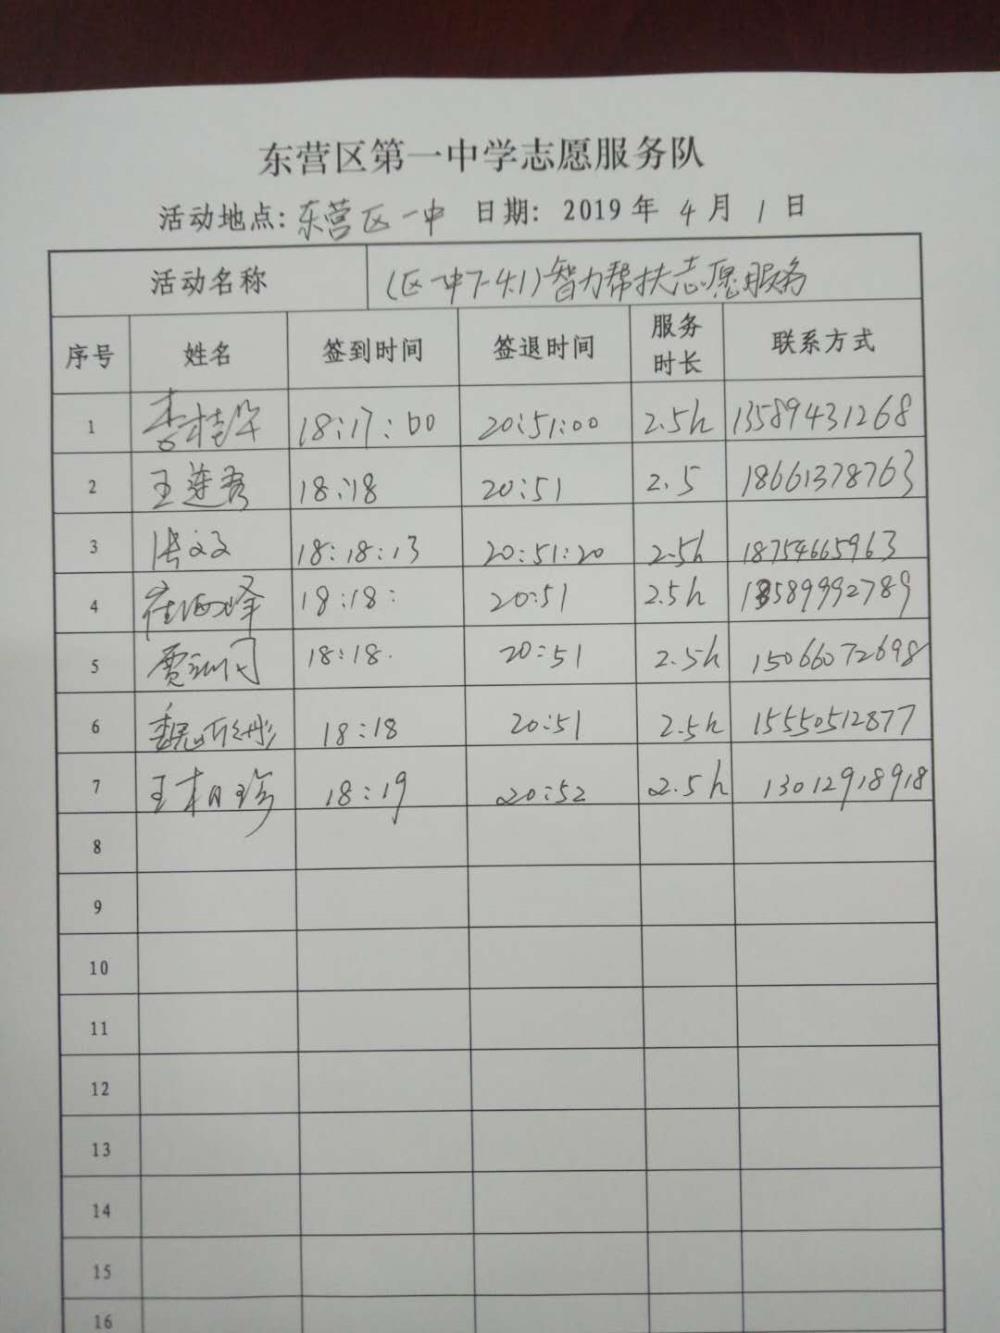 东营区第一中学志愿服务队
活动地点: 东营区一中 日期: 2019年4月1日
活动名称 (区一中7-4.1)智力帮扶志愿服务
序号 姓名 签到时间 签退时间 服务时长 联系方式
1 李桂华 18:17:00 20:51:00 2.5h 13589431268
2 王莲 18:18 20:51 2.5 18661378763
3 张文 18:18:13 20:51:20 2.5h 18754665963
4 崔海峰 18:18: 20:51 2.5h 13589992789
5 贾 18:18. 20:51 2.5h 15066072698
6 魏 彤 18:18 20:51 2.5h 15550512877
7 王相珍 18:19 20:52 2.5h 13012918918
8
9
10
11
12
13
14
15
16